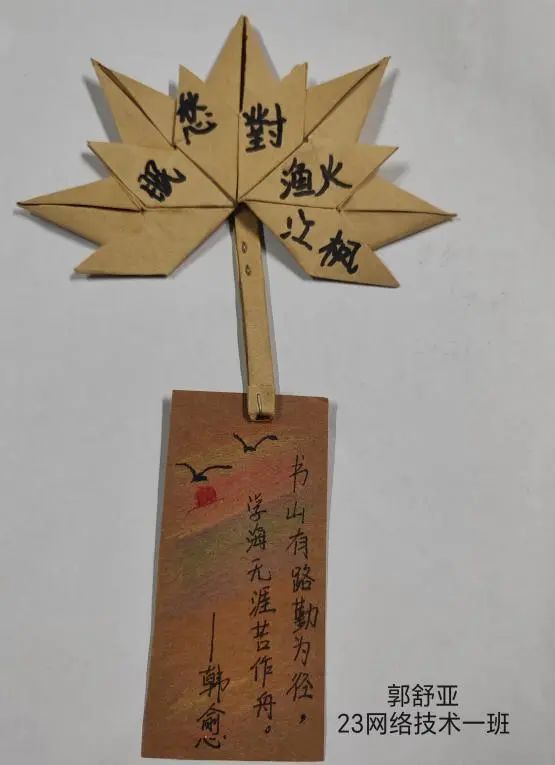 江枫
渔火
對
愁
眠
书山有路勤为径，
学海无涯苦作舟。
——韩愈
郭舒亚
23网络技术一班